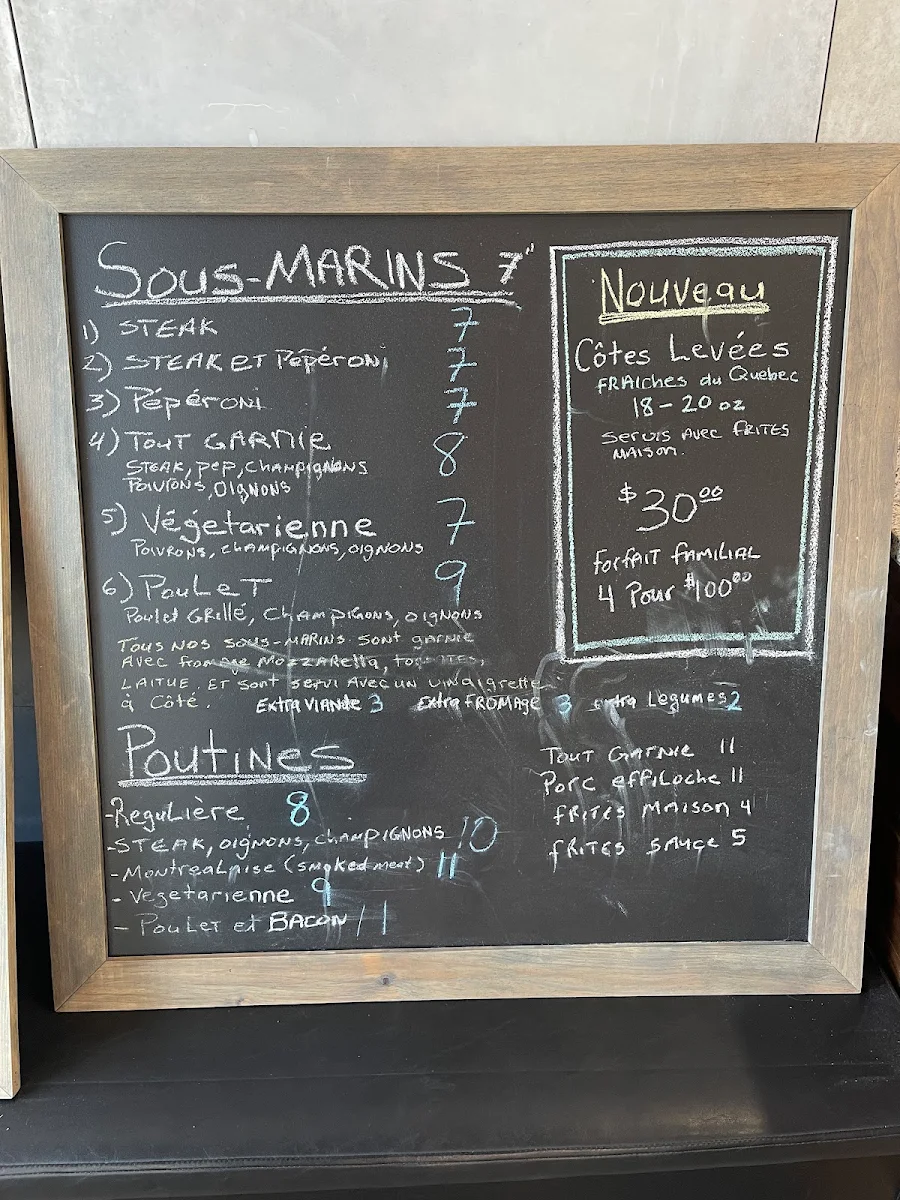 Sous-MARINS 7"
1) STEAK 7
2) STEAK ET Pépéroni 7
3) Pépéroni 7
4) Tout GARNIE 8
STEAK, pep, champignons
Poivrons, Oignons
5) Végetarienne 7
Poivrons, champignons, oignons
6) PouLeT 9
Poulet GRillé, Champignons, oignons
Tous nos sous-marins sont garnie
Avec fromage Mozzarella, tomates,
LAITUE. ET sont servi Avec un vinaigrette
à Côté.
Extra VIANde 3 Extra FROMAGE 3 extra Légumes 2
Nouveau
Côtes Levées
FRAIches du Quebec
18-20 oz
Servis Avec FRITES
MAISON.
$30.00
Forfait FAMILIAL
4 Pour $100.00
Poutines
-Regulière 8
-STEAK, oignons, champignons 10
-Montrealaise (smoked meat) 11
- Vegetarienne 9
- Poulet et BACON 11
Tout GARNIE 11
Porc effiloche 11
FRITES MAISON 4
FRITES SAUCE 5